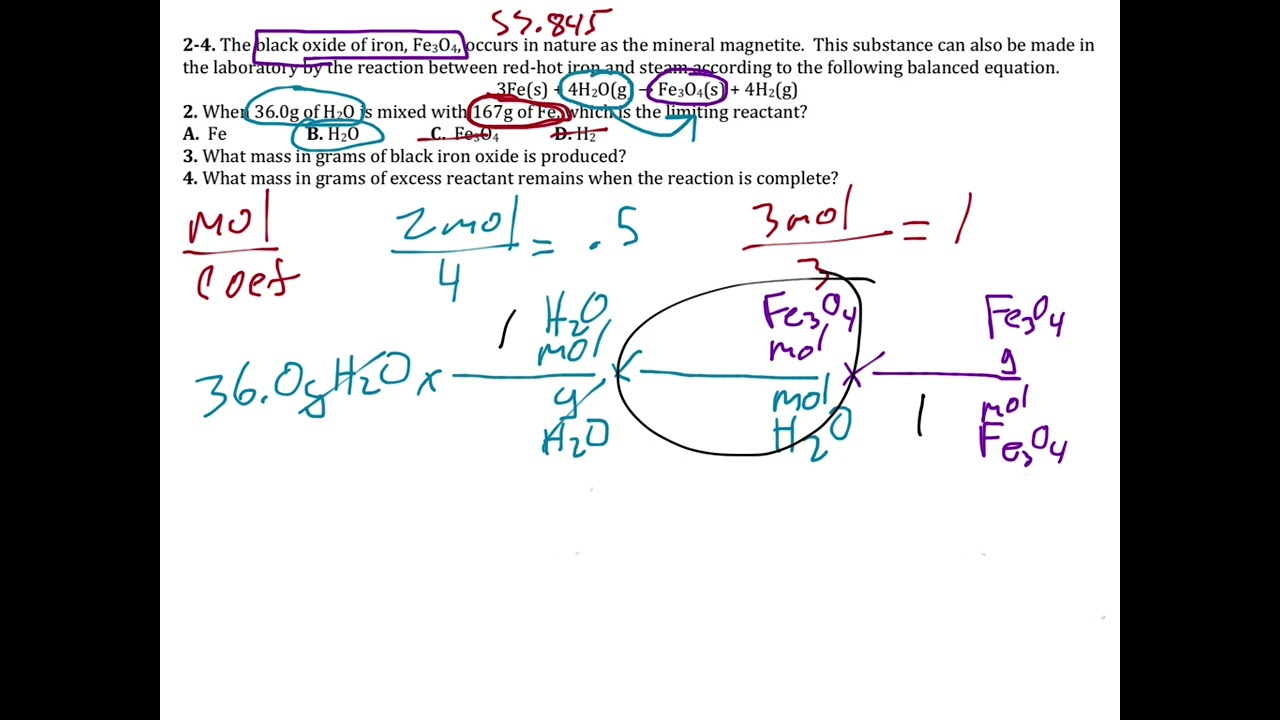 55.845
2-4. The black oxide of iron, Fe₃O₄, occurs in nature as the mineral magnetite. This substance can also be made in
the laboratory by the reaction between red-hot iron and steam according to the following balanced equation.
3Fe(s) + 4H₂O(g) → Fe₃O₄(s) + 4H₂(g)
2. When 36.0g of H₂O is mixed with 167g of Fe, which is the limiting reactant?
A. Fe B. H₂O C. Fe₃O₄ D. H₂
3. What mass in grams of black iron oxide is produced?
4. What mass in grams of excess reactant remains when the reaction is complete?
mol 2mol = .5 3mol = 1
coef 4 3
1 H₂O Fe₃O₄ Fe₃O₄
mol mol g
36.0g H₂O x x x
g mol 1 mol
H₂O H₂O Fe₃O₄